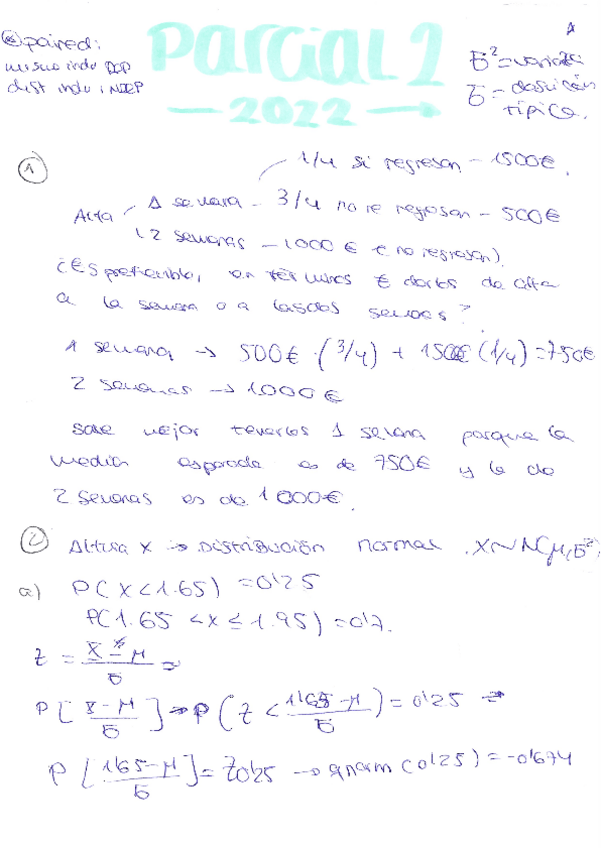 paired:
mismo indv DEP
dist indv INDEP
Parcial 2
2022
σ² = varianza
σ = desviación
típica.
①
1/4 si regresan - 1500€.
Alta 1 semana - 3/4 no re regresan - 500€
(2 semanas - 1000 € no regresan).
¿Es preferible, en términos € darles de alta
a la semana o a las dos semanas?
1 semana → 500€ · (3/4) + 1500€ (1/4) = 750€
2 semanas → 1000€
sale mejor tenerlos 1 semana porque la
media esperada es de 750€ y la de
2 semanas es de 1000€.
② Altura X → Distribución normal. X~N(μ, σ²)
a) P(X<1.65) = 0'25
P(1.65 < x ≤ 1.95) = 0'7.
Z = X - μ / σ =
P[X-μ / σ] → P(Z < 1'65-μ / σ) = 0'25 =
P[1'65-μ / σ] = Z0'25 → qnorm(0'25) = -0'674